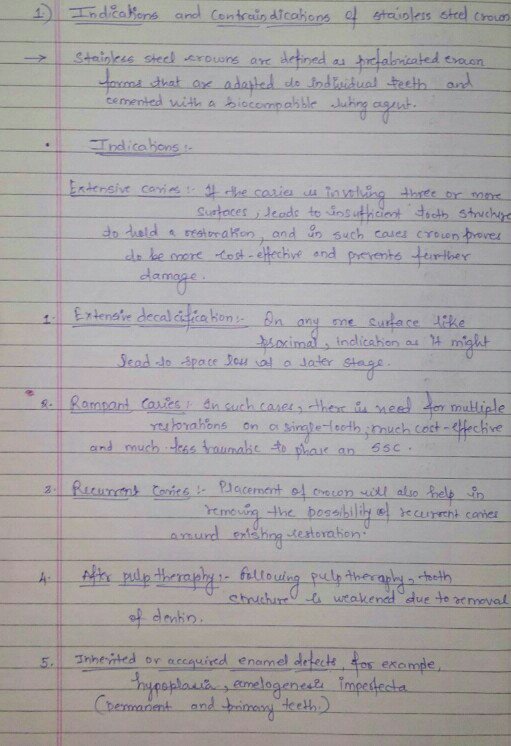 1) Indications and Contraindications of stainless steel crown
→ Stainless steel crowns are defined as prefabricated crown
forms that are adapted to individual teeth and
cemented with a biocompatible luting agent.
• Indications :-
Extensive caries :- If the caries is involving three or more
surfaces, leads to insufficient tooth structure
to hold a restoration, and in such cases crown proves
to be more cost-effective and prevents further
damage.
1. Extensive decalcification :- On any one surface like
proximal, indication as it might
lead to space loss at a later stage.
2. Rampant Caries :- In such cases, there is need for multiple
restorations on a single tooth, much cost-effective
and much less traumatic to phase an SSC.
3. Recurrent Caries :- Placement of crown will also help in
removing the possibility of recurrent caries
around existing restoration.
4. After pulp theraphy :- following pulp theraphy, tooth
structure is weakened due to removal
of dentin.
5. Inherited or accquired enamel defects, for example,
hypoplasia, amelogenesis imperfecta
(permanent and primary teeth.)